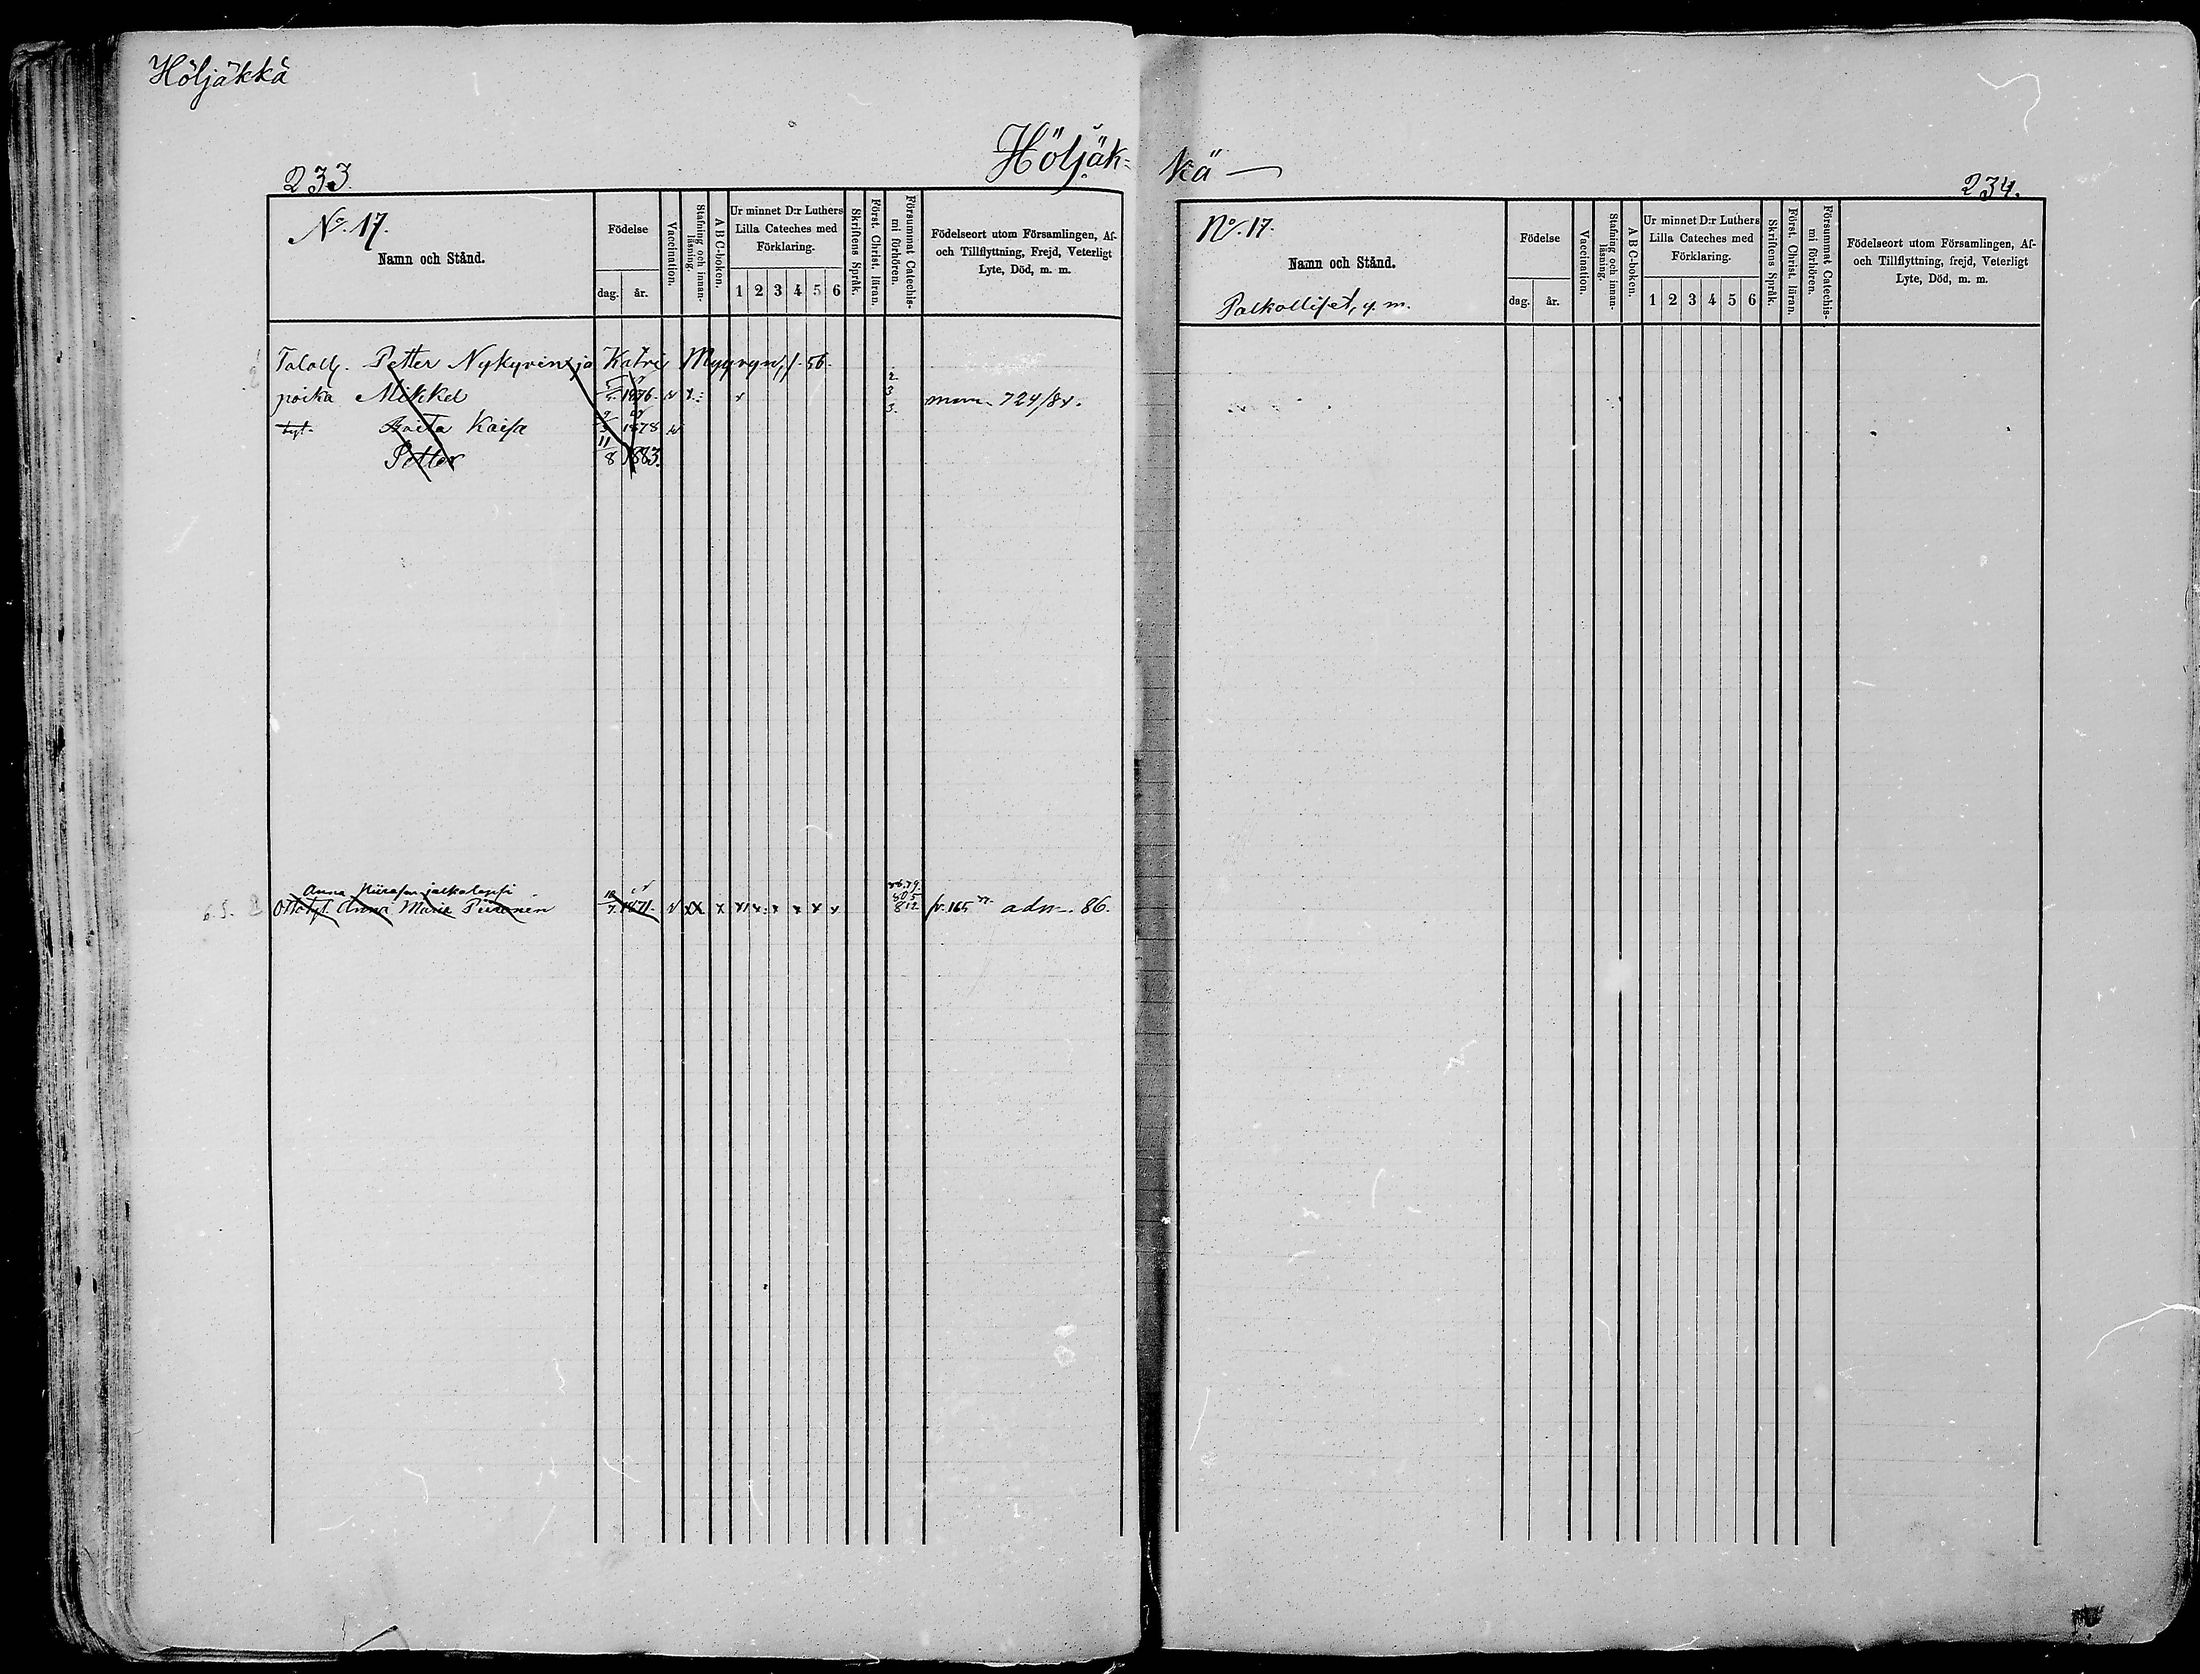 Höljäkkä
Höljäk-
233.
No. 17.
Namn och Stånd.
Födelse
dag. år.
Vaccination.
Stafning och innan-
läsning.
A B C-boken.
Ur minnet D:r Luthers
Lilla Cateches med
Förklaring.
1 2 3 4 5 6
Skriftens Språk.
Först. Christ. läran.
Försummat Catechis-
mi förhören.
Födelseort utom Församlingen, Af-
och Tillflyttning, Frejd, Veterligt
Lyte, Död, m. m.
Petter Nykyrin ja Katri 56.
2
poika Mikkel 1876 v x x 3 724/84.
3.
tyt. Kaisa 1878 v
11/8 Petter 1883.
Anna
Anna Maria Piironen 1871. v xx x x x x x x 812 165 adm. 86.
kä —
234.
No. 17.
Namn och Stånd.
Palkolliset, y. m.
Födelse
dag. år.
Vaccination.
Stafning och innan-
läsning.
A B C-boken.
Ur minnet D:r Luthers
Lilla Cateches med
Förklaring.
1 2 3 4 5 6
Skriftens Språk.
Först. Christ. läran.
Försummat Catechis-
mi förhören.
Födelseort utom Församlingen, Af-
och Tillflyttning, frejd, Veterligt
Lyte, Död, m. m.